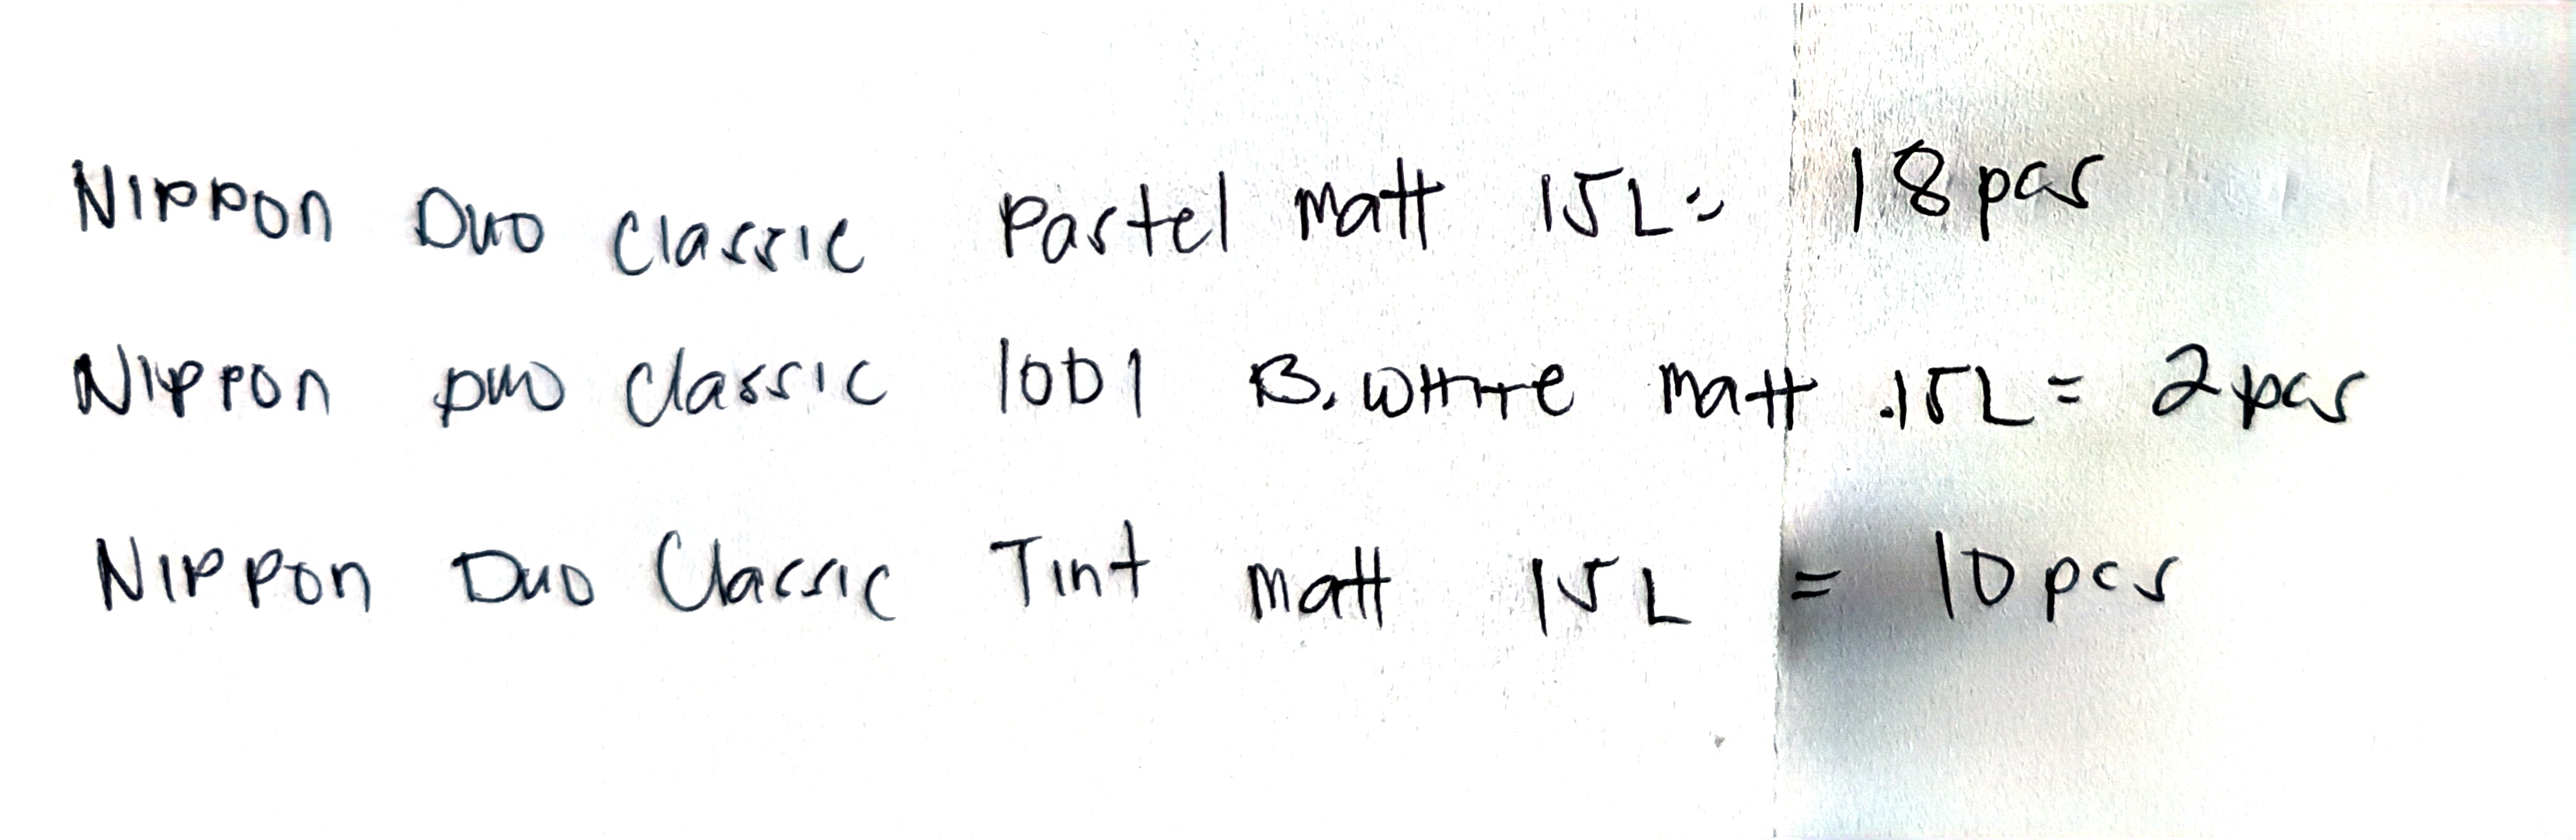 Nippon Duo Classic Pastel Matt 15L = 18pcs
Nippon Duo Classic 1001 B. White Matt 15L = 2pcs
Nippon Duo Classic Tint Matt 15L = 10pcs